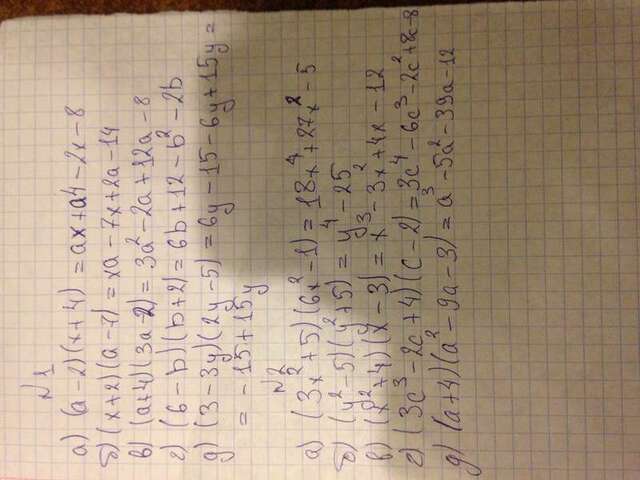 №1
а) (a-2)(x+4) = ax+a4-2x-8
б) (x+2)(a-7) = xa-7x+2a-14
в) (a+4)(3a-2) = 3a²-2a+12a-8
г) (6-b)(b+2) = 6b+12-b²-2b
д) (3-3y)(2y-5) = 6y-15-6y+15y =
= -15+15y
№2
а) (3x²+5)(6x²-1) = 18x⁴+27x²-5
б) (y²-5)(y²+5) = y⁴-25
в) (x²+4)(x-3) = x³-3x²+4x-12
г) (3c³-2c+4)(c-2) = 3c⁴-6c³-2c²+8c-8
д) (a+4)(a²-9a-3) = a³-5a²-39a-12